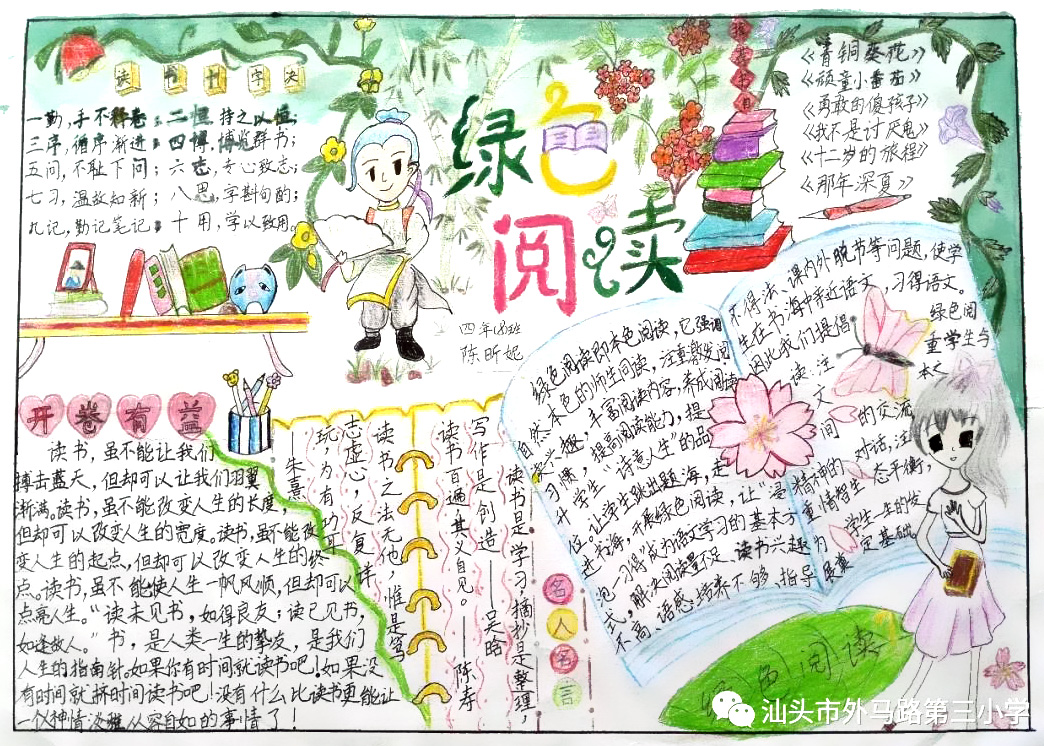 读书十字决
一勤,手不释卷;二恒,持之以恒;
三序,循序渐进;四博,博览群书;
五问,不耻下问;六志,专心致志;
七习,温故如新;八思,字斟句酌;
九记,勤记笔记;十用,学以致用。
绿色
阅读
四年(8)班
陈昕妮
推荐书目
《青铜葵花》
《顽童小番茄》
《勇敢的傻孩子》
《我不是讨厌鬼》
《十二岁的旅程》
《那年深夏》
开卷有益
读书,虽不能让我们
搏击蓝天,但却可以让我们羽翼
渐满。读书,虽不能改变人生的长度,
但却可以改变人生的宽度。读书,虽不能改
变人生的起点,但却可以改变人生的终
点。读书,虽不能使人生一帆风顺,但却可以
点亮人生。“读未见书,如得良友;读已见书,
如逢故人。”书,是人类一生的挚友,是我们
人生的指南针。如果你有时间就读书吧!如果没
有时间就挤时间读书吧!没有什么比读书更能让
一个种情淡雅从容自如的事情了!
名人名言
读书是学习,摘抄是整理,
写作是创造——吴晗
读书百遍,其义自见。——陈寿
读书之法无他,惟是笃
志虚心,反复详
玩,为有功耳
——朱熹
绿色阅读即本色阅读,它强调
自然、本色的师生间读,注重激发阅
读兴趣,丰富阅读内容,养成阅读
习惯,提高阅读能力,提
升学生“诗意人生”的品
位。让学生跳出题海,走
进书海,开展绿色阅读,让“浸
泡一习得”成为语文学习的基本方
式,解决阅读量不足、读书兴趣
不高、语感培养不够、指导
不得法、课内外脱节等问题,使学
生在书海中亲近语文,习得语文。
因此我们提倡绿色阅
读:注重学生与
文本之
间的交流
对话,注
重情智生态平衡,
为学生一生的发
展奠定基础。
绿色阅读
汕头市外马路第三小学